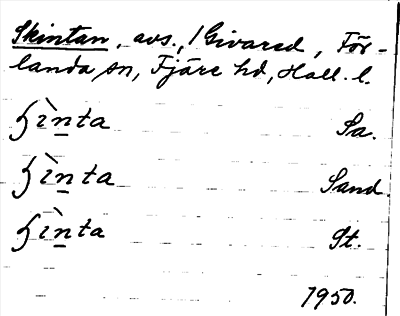 Skintan, avs., 1 Givared, För-
landa sn, Fjäre hd, Hall. l.
ʃìn̲ta Sa.
ʃìn̲ta Sand.
ʃìn̲ta St.
1950.